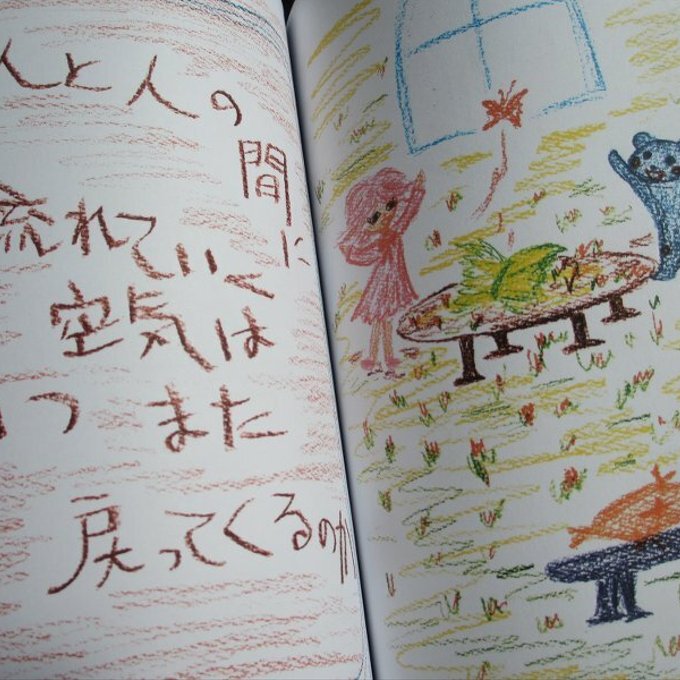 人と人の
間に
流れていく
空気は
いつ また
戻ってくるのか